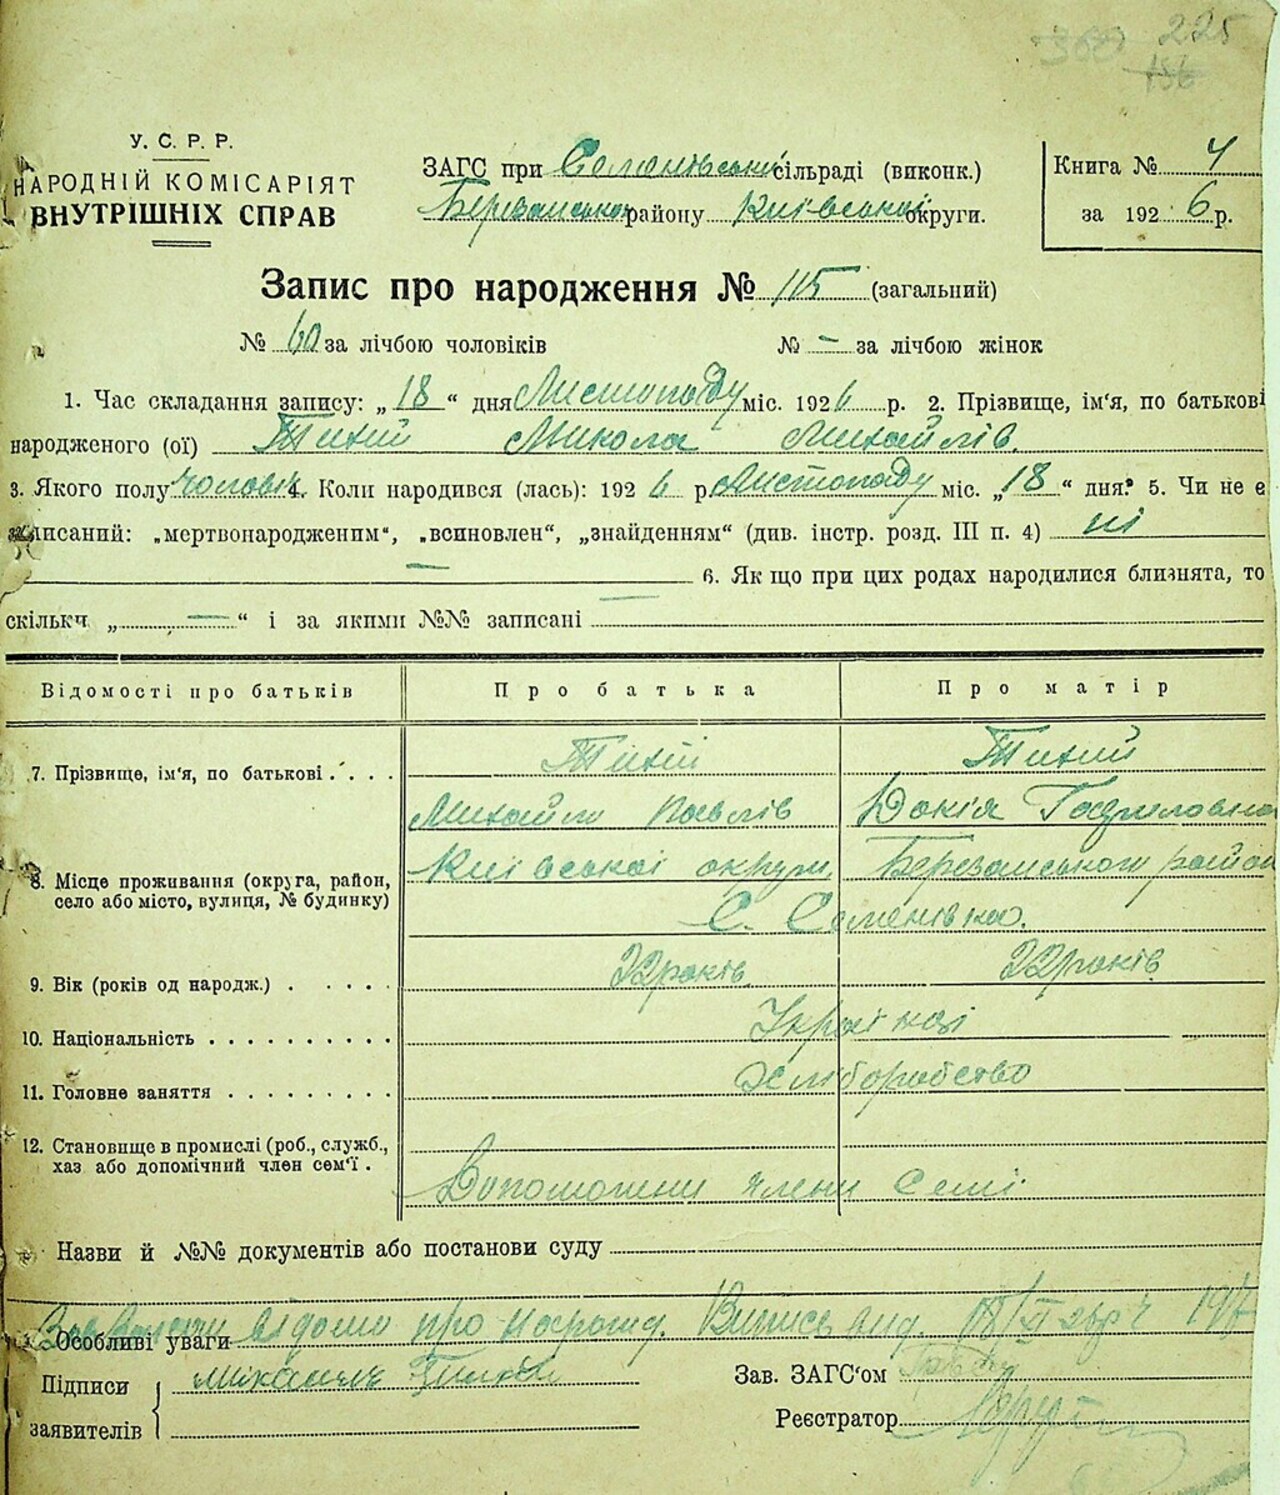 225
У. С. Р. Р.
НАРОДНІЙ КОМІСАРІЯТ
ВНУТРІШНІХ СПРАВ
ЗАГС при Семенівській сільраді (виконк.)
Березанського району Київської округи.
Книга № 4
за 1926 р.
Запис про народження № 115 (загальний)
№ 60 за лічбою чоловіків № — за лічбою жінок
1. Час складання запису: „18“ дня Листопаду міс. 1926 р. 2. Прізвище, ім'я, по батькові
народженого (ої) Тихий Микола Михайлів.
3. Якого полу чоловік. 4. Коли народився (лась): 1926 р. Листопаду міс. „18“ дня. 5. Чи не є
записаний: „мертвонародженим“, „всиновлен“, „знайденням“ (див. інстр. розд. III п. 4) ні
— 6. Як що при цих родах народилися близнята, то
скільки „—“ і за якими №№ записані —
Відомості про батьків Про батька Про матір
7. Прізвище, ім'я, по батькові . . . . Тихий Тихий
Михайло Павлів Докія Гавриловна
8. Місце проживання (округа, район,
село або місто, вулиця, № будинку)
Київської округи, Березанського район
С. Семенівка.
9. Вік (років од народж.) . . . . . 22 років. 22 років.
10. Національність . . . . . . . . . . Українці
11. Головне заняття . . . . . . . . . Хліборобство
12. Становище в промислі (роб., служб.,
хаз або допомічний член сем'ї .
Допоможни члени Семї
Назви й №№ документів або постанови суду
Особливі уваги відомо про нарожд. Випись вид. 18/XI 26р Ч 197
Підписи
заявителів
Михаил Тихий
Зав. ЗАГС'ом
Реєстратор